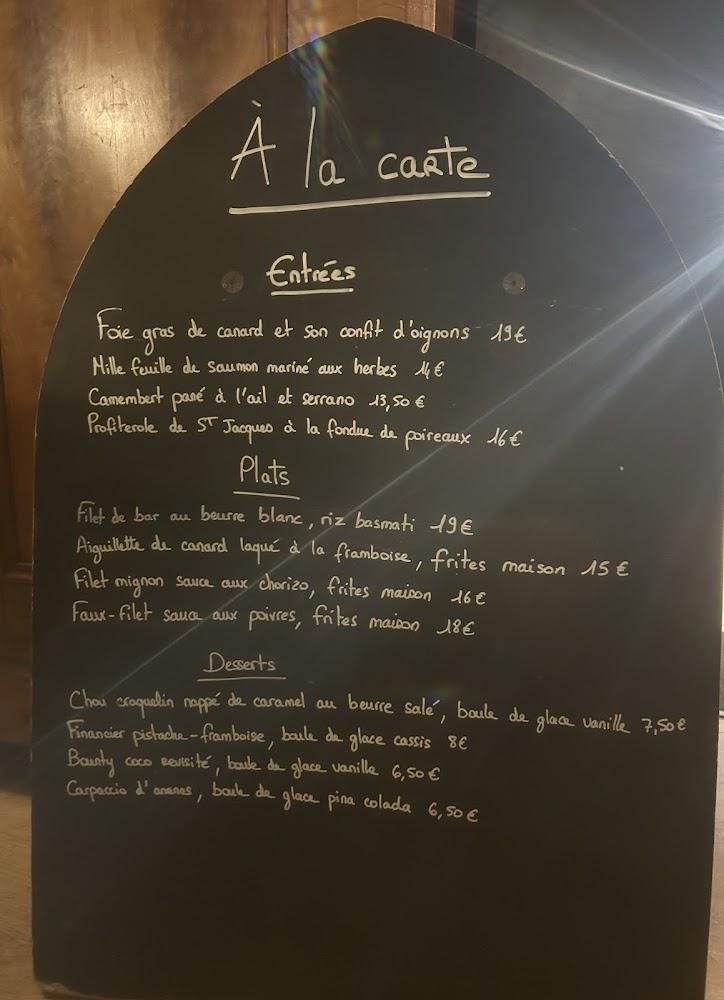 À la carte
Entrées
Foie gras de canard et son confit d'oignons 19€
Mille feuille de saumon mariné aux herbes 14€
Camembert pané à l'ail et serrano 13,50€
Profiterole de ST Jacques à la fondue de poireaux 16€
Plats
Filet de bar au beurre blanc, riz basmati 19€
Aiguillette de canard laqué à la framboise, frites maison 15€
Filet mignon sauce aux chorizo, frites maison 16€
Faux-filet sauce aux poivres, frites maison 18€
Desserts
Chou craquelin nappé de caramel au beurre salé, boule de glace vanille 7,50€
Financier pistache-framboise, boule de glace cassis 8€
Bounty coco revisité, boule de glace vanille 6,50€
Carpaccio d'ananas, boule de glace pina colada 6,50€